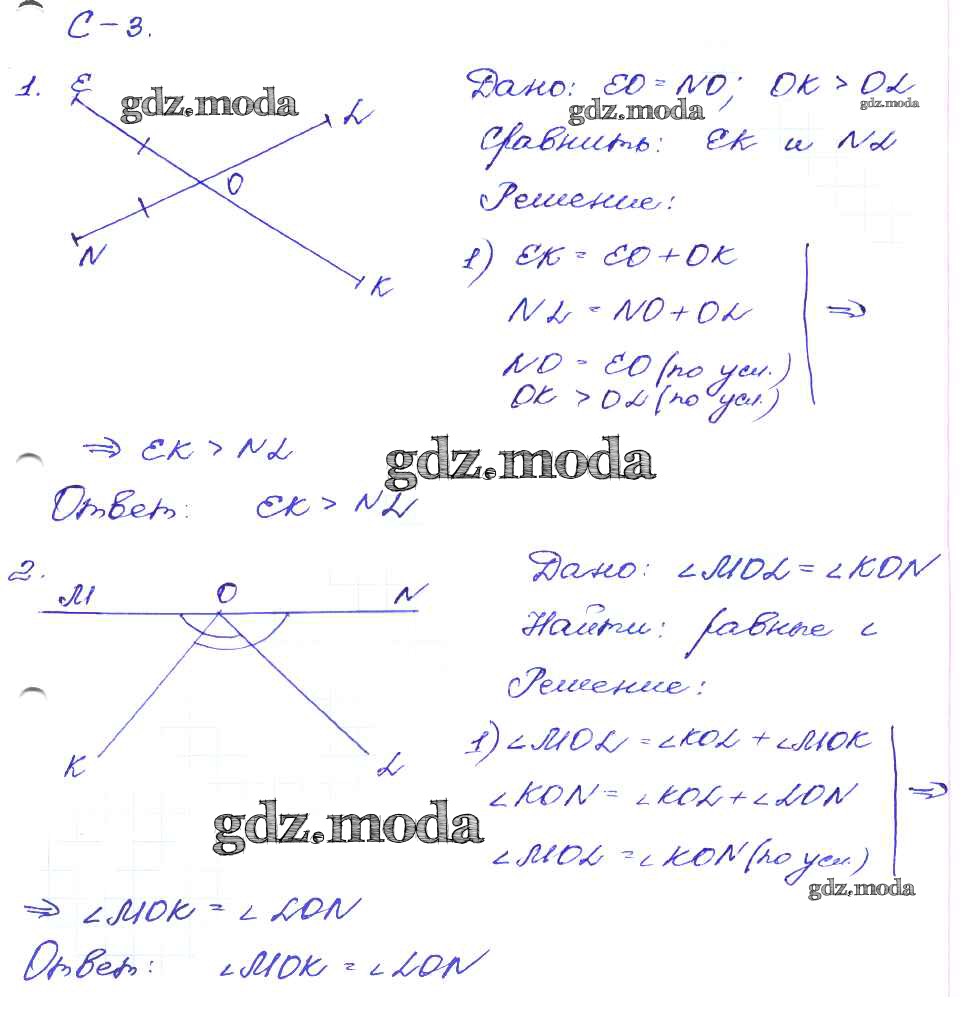 С-3.
1. E L O N K
Дано: EO = NO; OK > OL
Сравнить: EK и NL
Решение:
1) EK = EO + OK
NL = NO + OL
NO = EO (по усл.)
OK > OL (по усл.)
⇒
⇒ EK > NL
Ответ: EK > NL
2. M O N K L
Дано: ∠MOL = ∠KON
Найти: равные ∠
Решение:
1) ∠MOL = ∠KOL + ∠MOK
∠KON = ∠KOL + ∠LON
∠MOL = ∠KON (по усл.)
⇒
⇒ ∠MOK = ∠LON
Ответ: ∠MOK = ∠LON
gdz.moda
gdz.moda
gdz.moda
gdz.moda
gdz.moda
gdz.moda